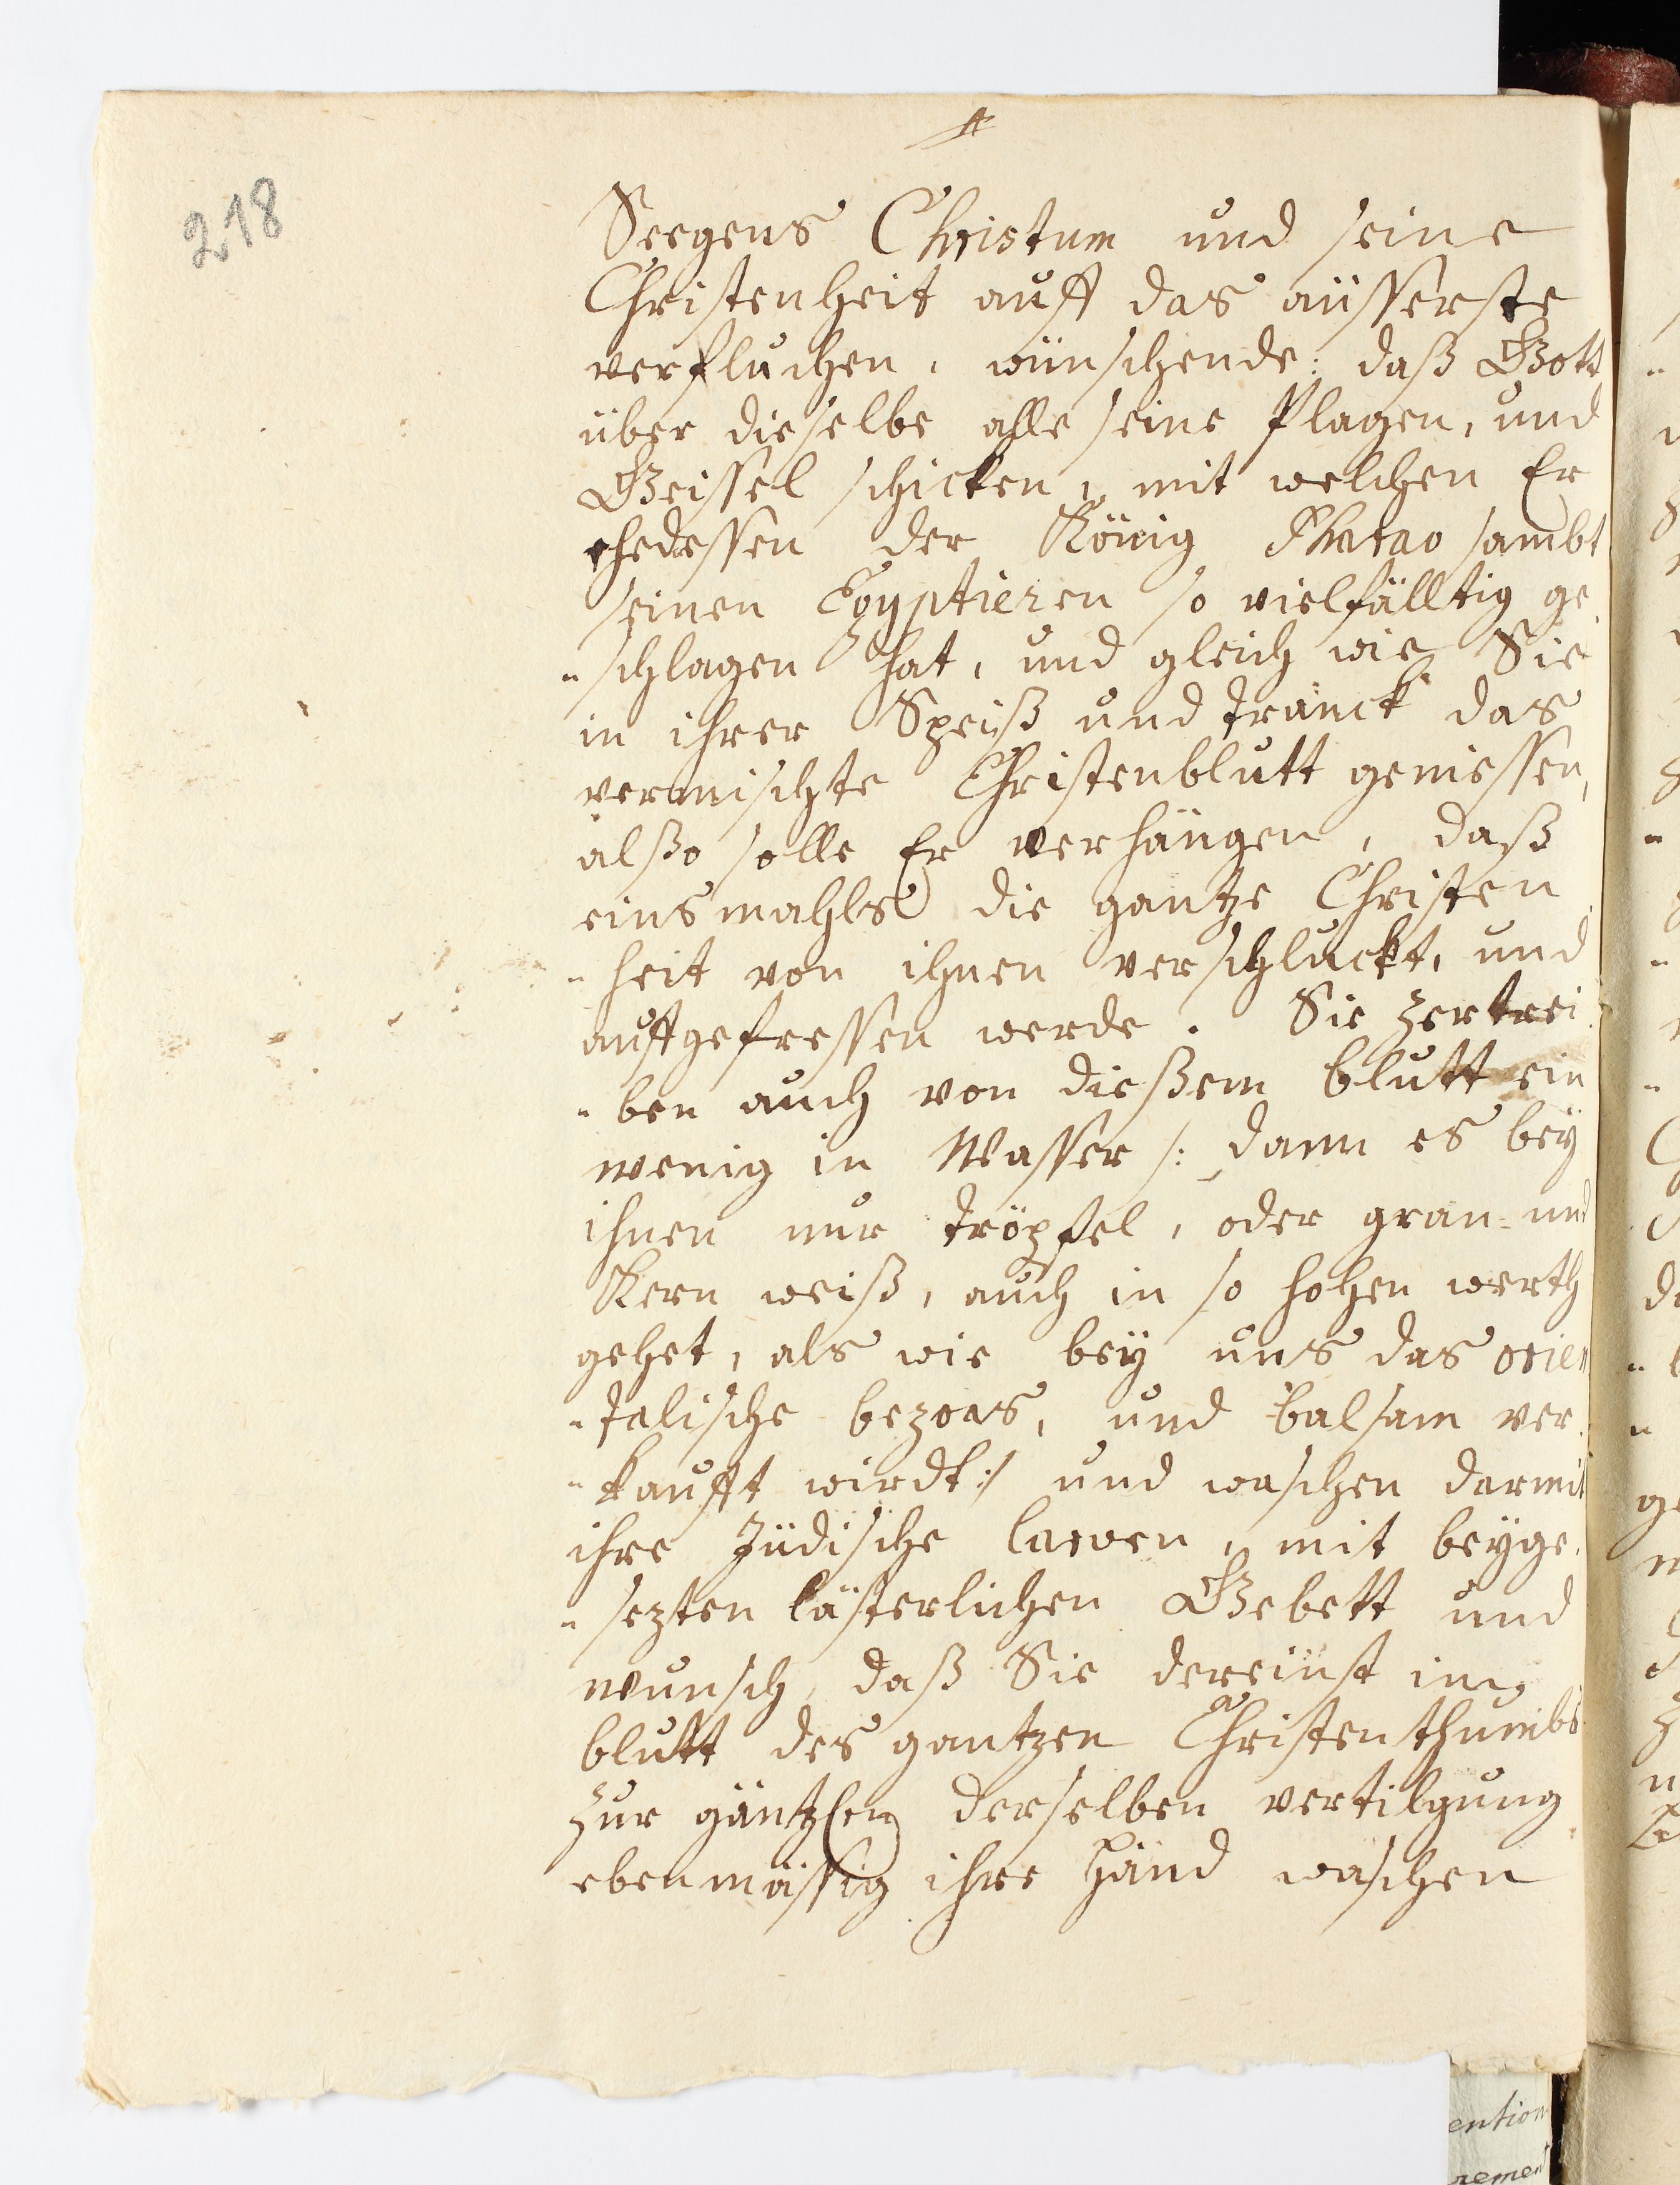 218
Seegens Christum und seine
Christenheit auff das äusserste
verfluchen, wünschende: daß Gott
über dieselbe alle seine Plagen, und
Geissel schicken, mit welchen Er
ehedessen der König Pharao sambt
seinen Egyptieren so vielfälltig ge
"schlagen hat, und gleich wie Sie
in ihrer Speiß und tranck das
vermischte Christenblutt geniessen,
alßo solle Er verhängen, daß
einsmahls die gantze Christen
"heit von ihnen verschluckt, und
auffgefressen werde. Sie zertrei
"ben auch von dießem blutt ein
wenig in Wasser /: dann es bey
ihnen nur tröpfel, oder gran- und
Kern weiß, auch in so hohen werth
gehet, als wie bey uns das orien
"talische bezoar, und balsam ver
"kaufft wirdt :/ und waschen darmit
ihre Jüdische larven, mit beyge
"sezten lästerlichen Gebett und
wunsch, daß Sie dereinst im
blutt des gantzen Christenthumbs
zur gäntzlen derselben vertilgung
ebenmässig ihre händ waschen
ention
rement